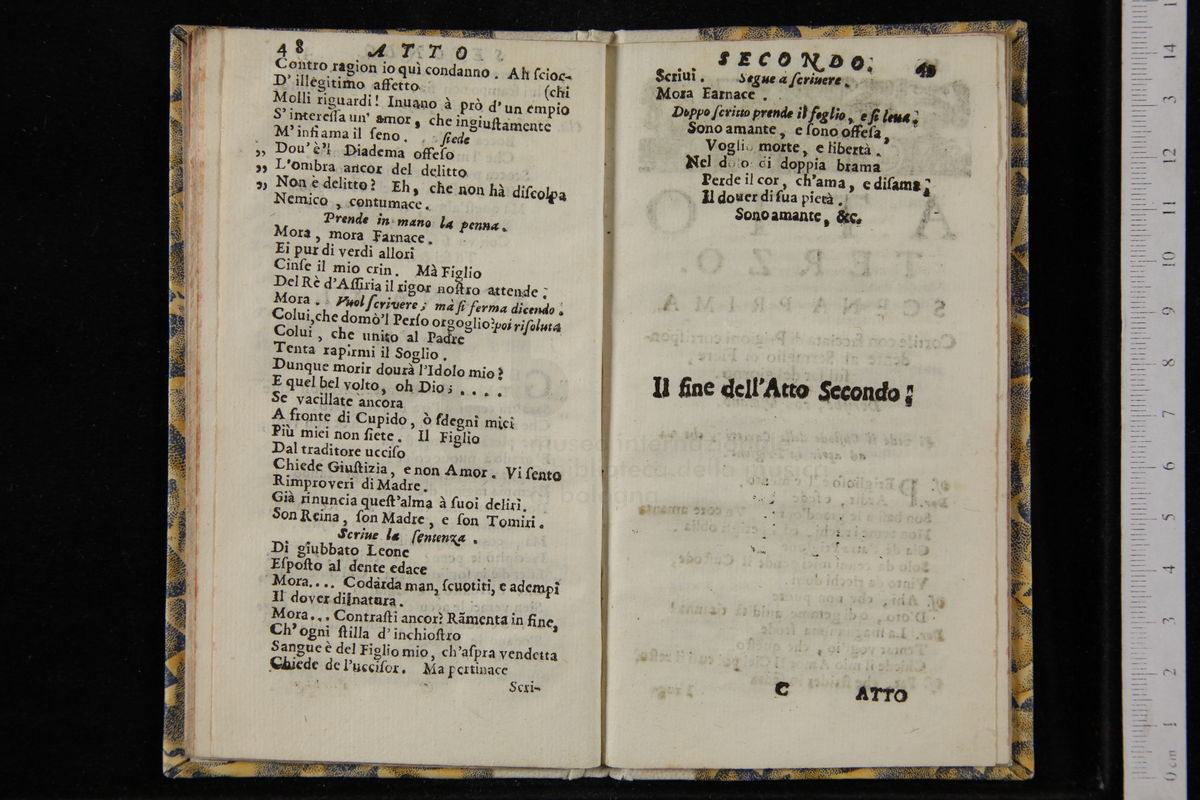 48 ATTO
Contro ragion io quì condanno. Ah ſcioc-
D'illegitimo affetto (chi
Molli riguardi! Inuano à prò d'un empio
S'intereſſa un' amor, che ingiuſtamente
M'infiama il ſeno. ſiede
„ Dou' è'l Diadema offeſo
„ L'ombra ancor del delitto
„ Non è delitto? Eh, che non hà diſcolpa
Nemico, contumace.
Prende in mano la penna.
Mora, mora Farnace.
Ei pur di verdi allori
Cinſe il mio crin. Mà Figlio
Del Rè d'Aſſiria il rigor noſtro attende:
Mora. Vuol ſcrivere; mà ſi ferma dicendo:
Colui, che domò'l Perſo orgoglio? poi riſoluta
Colui, che unito al Padre
Tenta rapirmi il Soglio.
Dunque morir dourà l'Idolo mio?
E quel bel volto, oh Dio; . . . .
Se vacillate ancora
A fronte di Cupido, ò ſdegni miei
Più miei non ſiete. Il Figlio
Dal traditore ucciſo
Chiede Giuſtizia, e non Amor. Vi ſento
Rimproveri di Madre.
Già rinuncia queſt'alma à ſuoi deliri.
Son Reina, ſon Madre, e ſon Tomiri.
Scriue la ſentenza.
Di giubbato Leone
Eſpoſto al dente edace
Mora.... Codarda man, ſcuotiti, e adempi
Il dover di natura.
Mora... Contraſti ancor? Ramenta in fine,
Ch'ogni ſtilla d'inchioſtro
Sangue è del Figlio mio, ch'aſpra vendetta
Chiede de l'ucciſor. Ma pertinace
Scri-
SECONDO. 49
Scriui. Segue à ſcrivere.
Mora Farnace.
Doppo ſcritto prende il foglio, e ſi leua;
Sono amante, e ſono offeſa,
Voglio morte, e libertà.
Nel duolo di doppia brama
Perde il cor, ch'ama, e diſama;
Il douer di ſua pietà.
Sono amante, &c.
Il fine dell'Atto Secondo;
C ATTO
museo internazionale
biblioteca della musica
bologna
14
13
12
11
10
9
8
7
6
5
4
3
2
1
0 cm